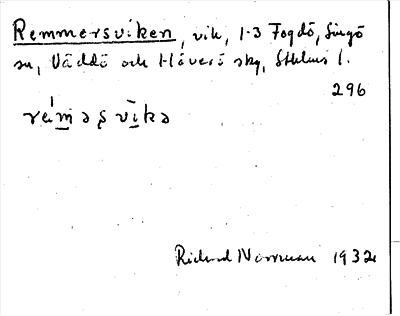 Remmersviken, vik, 1-3 Fogdö, Singö
sn, Väddö och Häverö skg, Sthlms l.
296
rämәs vikә
Richard Norrman 1932